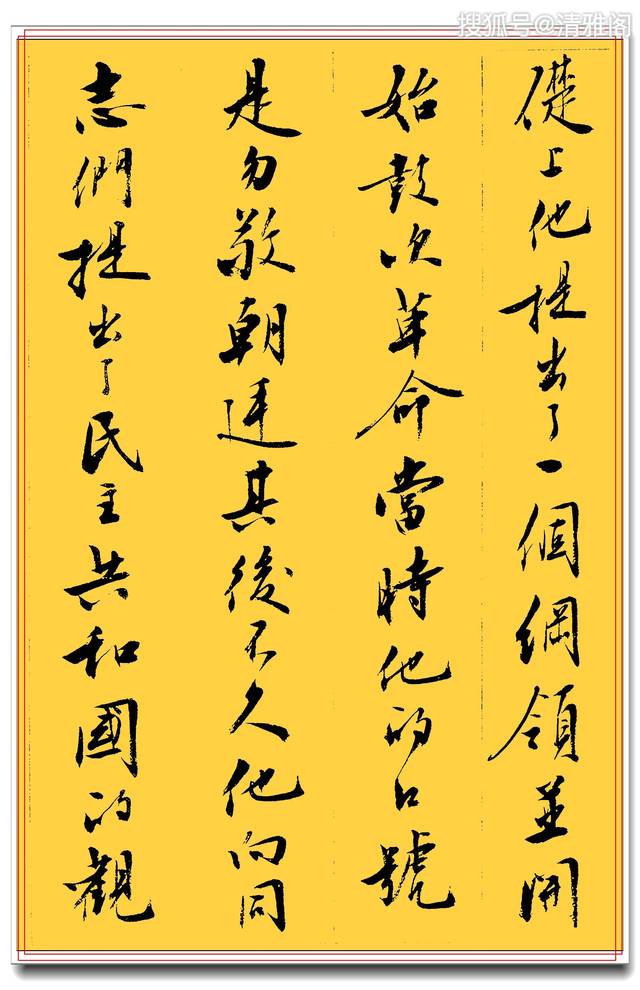 搜狐号@清雅阁
礎上他提出了一個綱領並開
始鼓次革命當時他的口號
是勿敬朝廷其後不久他向同
志們提出了民主共和國的觀